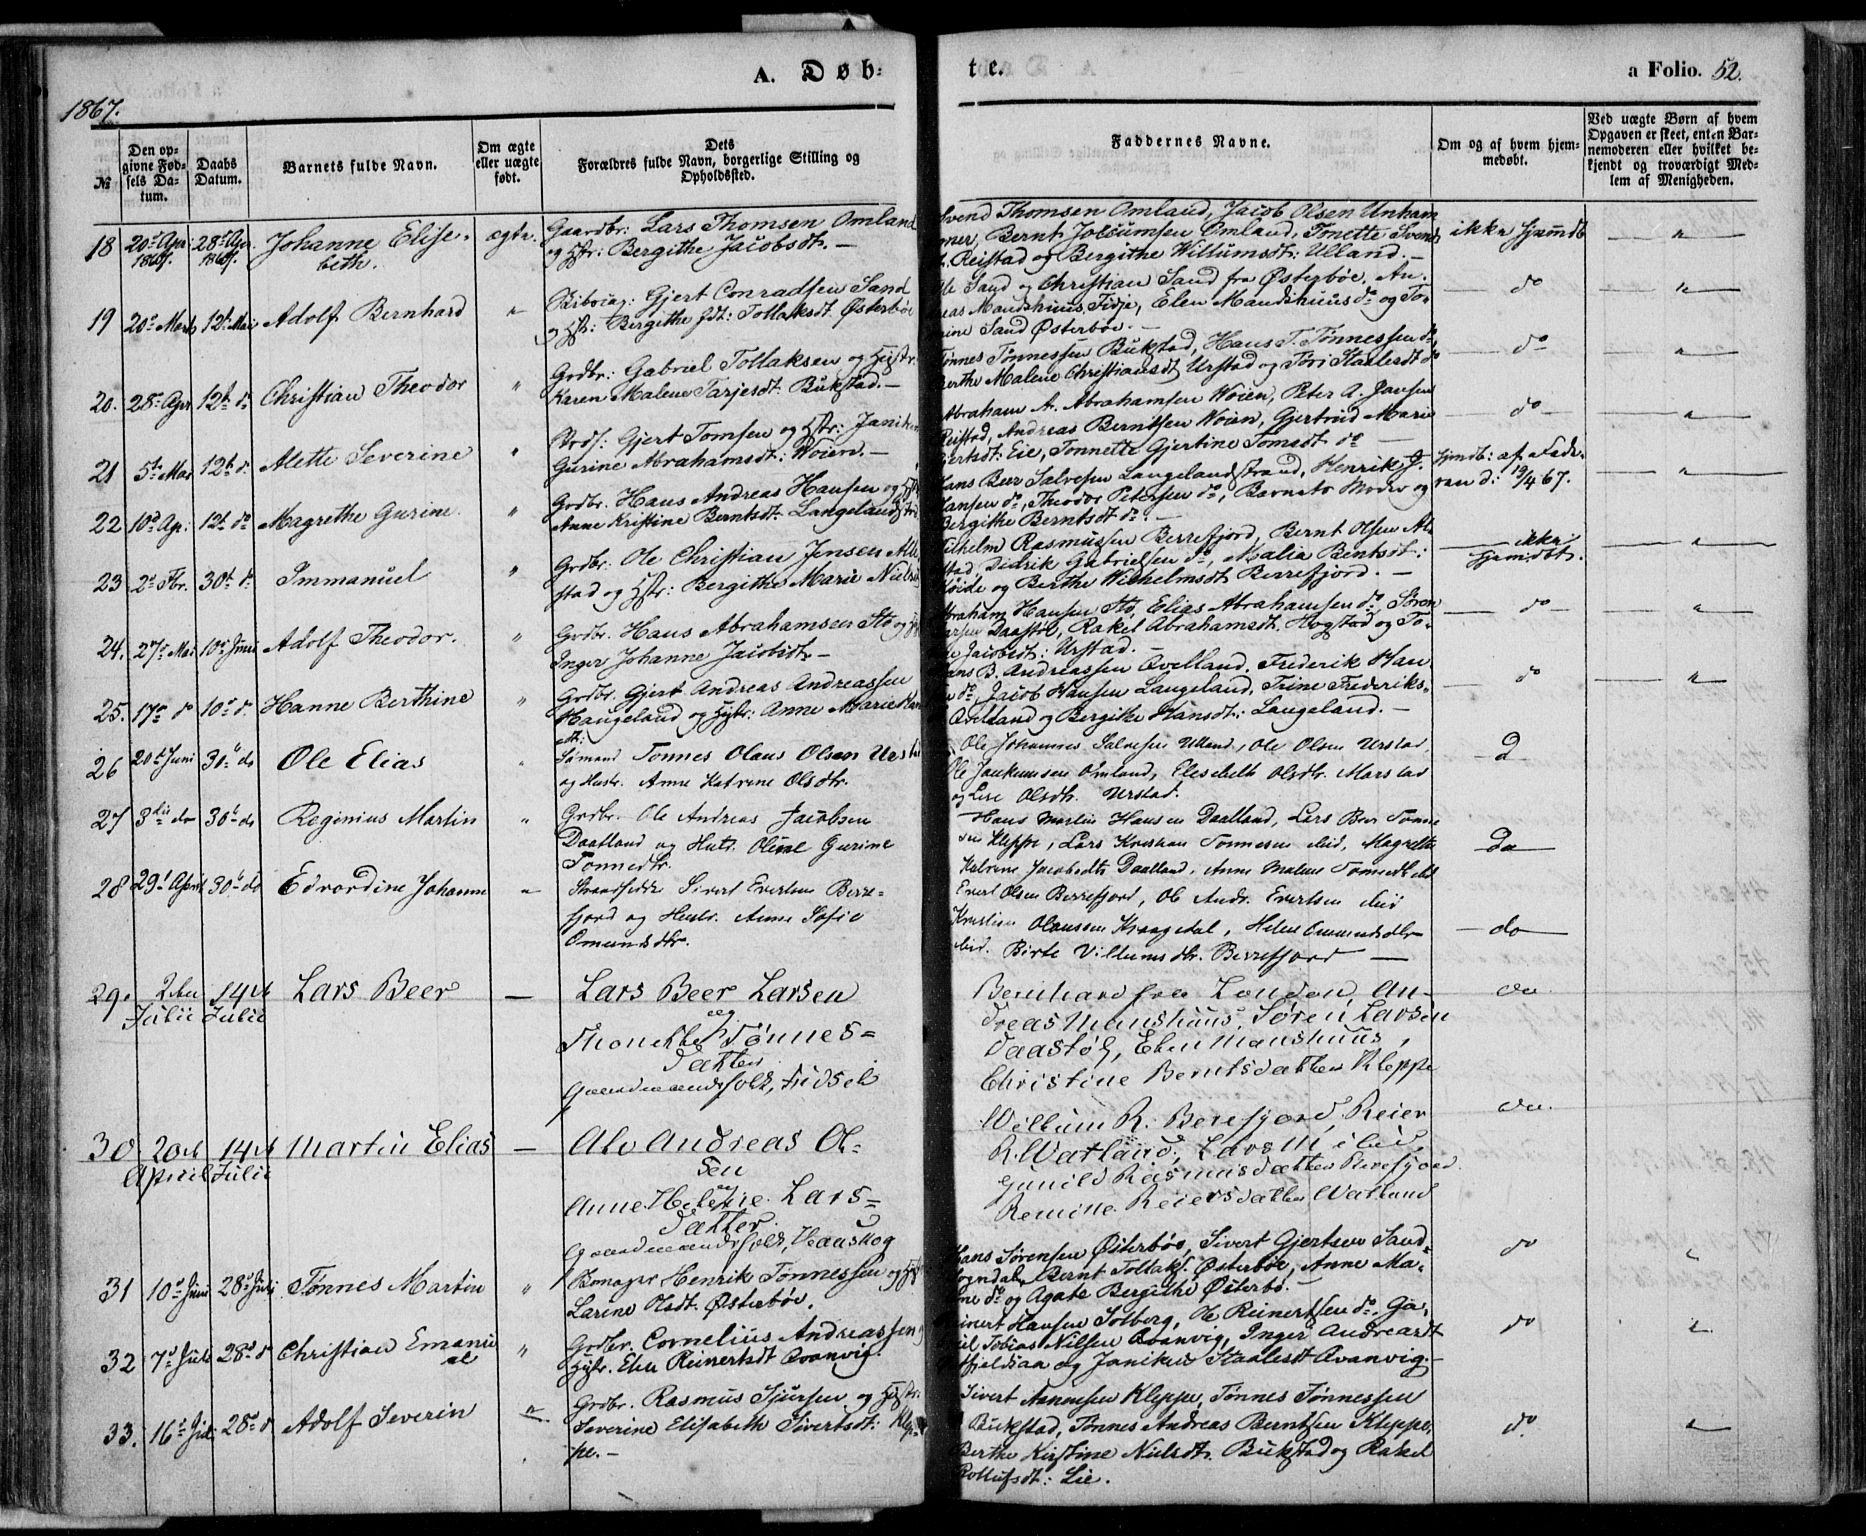 A. Døb-
te.
a Folio. 52.
1867.
№
Den op-
givne Fød-
sels Da-
tum.
Daabs
Datum.
Barnets fulde Navn.
Om ægte
eller uægte
født.
Dets
Forældres fulde Navn, borgerlige Stilling og
Opholdssted.
Faddernes Navne.
Om og af hvem hjem-
medøbt.
Ved uægte Børn af hvem
Opgaven er skeet, enten Bar-
nemoderen eller hvilket be-
kjendt og troværdigt Med-
lem af Menigheden.
18 20de Apr. 1867. 28de Apr. 1867. Johanne Elise-
beth. ægte.
Gaardbr: Lars Thomsen Omland
og Hstr: Bergithe Jacobsdt. —
Svend Thomsen Omland, Jacob Olsen Unham
mer, Bernt Jocumsen Omland, Tonette Svends
dt. Reistad og Bergithe Willumsdt: Ulland. —
ikke hjemdbt — " —
19 20de Marts 12te Mai Adolf Bernhard "
Gjert Conradsen Sand
og Hst: Bergithe fdt: Tollaksdt Østerbøe
Ole Sand og Christian Sand fra Østerbøe, An-
dreas Mandshuus Fidje, Elen Mandshuus do og To-
rine Sand Østerbøe. —
do — " —
20. 28de Apr. 12te do Christian Theodor "
Grdbr: Gabriel Tollaksen og Hustr:
Karen Malene Tarjesdt. Bukstad. —
Tønnes Tønnessen Bukstad, Hans T. Tønnessen do
Berthe Malene Christiansdt Urstad og Tori Staalesdt do
do — " —
21 5te Mai 12te d. Alette Severine "
Gjert Tomsen og Hstr: Janiken
Gurine Abrahamsdt: Woien. —
Abraham A. Abrahamsen Woien, Peter A. Jansen
Reistad, Andreas Berntsen Woien, Gjertrud Marie
Gjertsdt: Eie, Tonnette Gjertine Tomsdt do —
do — " —
22 10de Ap. 12te do Magrethe Gurine. "
Grdbr. Hans Andreas Hansen og Hstr
Anne Kristine Berntsdt. Langelandstrd.
Hans Beer Salvesen Langelandstrand, Henrik J.
Hansen do, Theodor Petersen do, Barnets Moder og
Bergithe Berntsdt do. —
Hjmdb: af Fade-
ren d: 19/4 67. — " —
23 2de Fbr. 30te d. Immanuel "
Grdbr: Ole Christian Jensen Alle
stad og Hstr: Bergithe Marie Niels
Wilhelm Rasmussen Berrefjord, Bernt Olsen Al-
stad, Didrik Gabrielsen do, Malia Bentsdt:
Høide og Berthe Wilhelmsdt Berrefjord. —
ikke
hjemdbt. — " —
24. 27de Mai 10de Juni Adolf Theodor. "
Grdbr. Hans Abrahamsen Stø og Hst
Inger Johanne Jacobsdt. —
Abraham Hansen Stø, Elias Abrahamsen do, Søren
Larsen Daastøl, Rakel Abrahamsdt. Hogstad og To-
Jacobsdt: Urstad. —
do — " —
25. 17de do 10de d. Hanne Berthine "
Grdbr. Gjert Andreas Andreassen
Haugeland og Hstr: Anne Marie Han
sdt:
Hans B. Andreassen Qvelland, Frederik Han
sen do, Jacob Hansen Langeland, Trine Frederiks-
Qvelland og Bergithe Hansdt: Langeland. —
do — " —
26 20de Juni 30te do Ole Elias "
Sømand Tonnes Olaus Olsen Urstad
og Hustr. Anne Katrene Olsdtr.
Ole Johannes Salvesen Ulland, Ole Olsen Urstad,
Ole Jonkumsen Omland, Elesebeth Olsdtr. Marstad
og Lise Olsdtr. Urstad.
27 3die do 30te do Reginius Martin "
Grdbr. Ole Andreas Jacobsen
Daatland og Hustr. Oline Gurine
Tonnesdtr.
Hans Martin Hansen Daatland, Lars Beer Tønne
sen Kleppe, Lars Kristian Tonnesen ibid, Magrethe
Katrene Jacobsdtr Daatland, Anne Malene Tonnesdtr ibid
do
28 29de April 30te do Edvardine Johanne "
Strandsidder Sivert Evertsen Berre-
fjord og Hustr. Anne Sofie
Omundsdtr.
Evert Olsen Berrefjord, Ole Andr. Evertsen ibid
Kristian Olaussen Kraagedal, Helene Omundsdtr
ibid. Birte Villumsdtr. Berrefjord —
do
29. 2den Julii 14de Julii Lars Beer —
Lars Beer Larsen
og
Thonette Tønnes=
datter
Gaardmandsfolk, Fidsel
Bernhard fra London, An-
dreas Manshuus, Søren Larsen
Daastøl, Elen Manshuus,
Christine Berntsdatter Kleppe
do.
30 20de April 14de Julii Martin Elias —
Alv Andreas Ol-
sen
og
Anne Helene Lars=
datter.
Gaardmandsfolk, Hauskog
Willum R. Berefjord, Reier
R. Watland, Lars M. ibid,
Gunild Rasmusdatter Berefjord
Remine Reiersdatter Watland
do.
31 10de Juni 28de Juli Tønnes Martin "
Henrik Tønnessen og Hst
Larine Olsdt. Østerbøe.
Hans Sørensen Østerbøe, Sivert Gjertsen Sand-
Bernt Tollaks. Østerbøe, Anne Ma-
lene do og Agate Bergithe Østerbø. —
do "
32 7de Juli 28de d Christian Emanu
el "
Grdbr. Cornelius Andreassen og
Hstr. Elen Reinertsdt Qvanvig.
Sivert Hansen Solberg, Ole Reinertsen do, Ga-
Tobias Nilsen Qvanvig, Inger Andreasdt
og Janiken Staalesdt Qvanvig. —
do "
33. 16de Juli 28de d Adolf Severin "
Grdbr. Rasmus Sjursen og Hstr:
Severine Elisabeth Sivertsdt: Klep-
pe. —
Sivert Aanensen Kleppe, Tønnes Tønnessen
Bukstad, Tønnes Andreas Berntsen Kleppe,
Berthe Kirstine Nielsdt. Bukstad og Rakel
Rollufsdt: Lie.
do. "